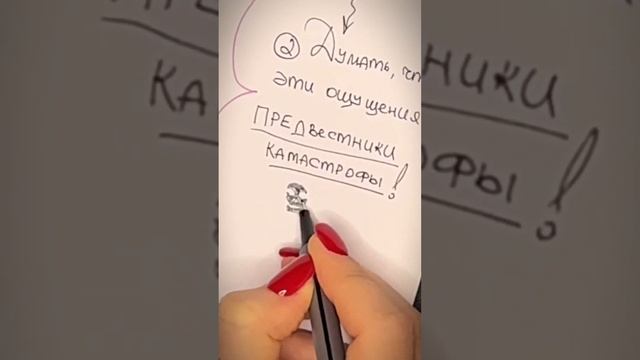 ② Думать, чт
эти ощущения
ПРЕДВЕСТНИКИ
КАТАСТРОФЫ!